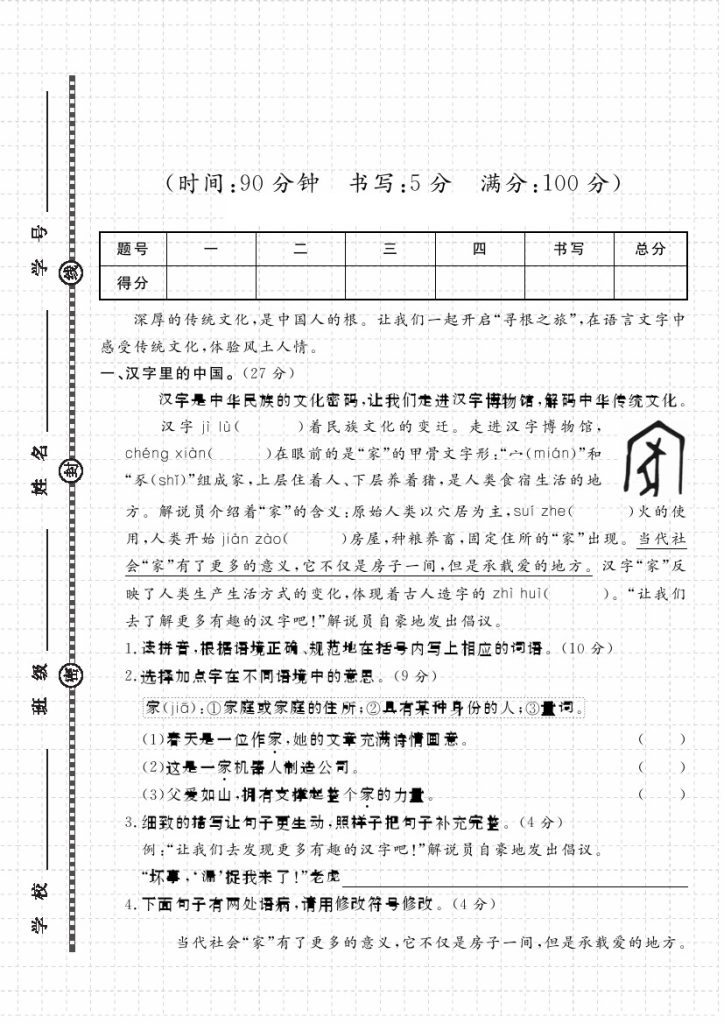 (时间:90分钟　书写:5分　满分:100分)
题号　一　二　三　四　书写　总分
得分
深厚的传统文化,是中国人的根。让我们一起开启“寻根之旅”,在语言文字中
感受传统文化,体验风土人情。
一、汉字里的中国。(27分)
汉字是中华民族的文化密码,让我们走进汉字博物馆,解码中华传统文化。
汉字 jì lù(　　　)着民族文化的变迁。走进汉字博物馆,
chéng xiàn(　　　)在眼前的是“家”的甲骨文字形:“宀(mián)”和
“豕(shǐ)”组成家,上层住着人、下层养着猪,是人类食宿生活的地
方。解说员介绍着“家”的含义:原始人类以穴居为主,suí zhe(　　　)火的使
用,人类开始 jiàn zào(　　　)房屋,种粮养畜,固定住所的“家”出现。当代社
会“家”有了更多的意义,它不仅是房子一间,但是承载爱的地方。汉字“家”反
映了人类生产生活方式的变化,体现着古人造字的 zhì huì(　　　)。“让我们
去了解更多有趣的汉字吧!”解说员自豪地发出倡议。
1.读拼音,根据语境正确、规范地在括号内写上相应的词语。(10分)
2.选择加点字在不同语境中的意思。(9分)
家(jiā):①家庭或家庭的住所;②具有某种身份的人;③量词。
(1)春天是一位作家,她的文章充满诗情画意。　(　　)
(2)这是一家机器人制造公司。　(　　)
(3)父爱如山,拥有支撑起整个家的力量。　(　　)
3.细致的描写让句子更生动,照样子把句子补充完整。(4分)
例:“让我们去发现更多有趣的汉字吧!”解说员自豪地发出倡议。
“坏事,‘漏’捉我来了!”老虎
4.下面句子有两处语病,请用修改符号修改。(4分)
当代社会“家”有了更多的意义,它不仅是房子一间,但是承载爱的地方。
学号
线
姓名
封
班级
密
学校